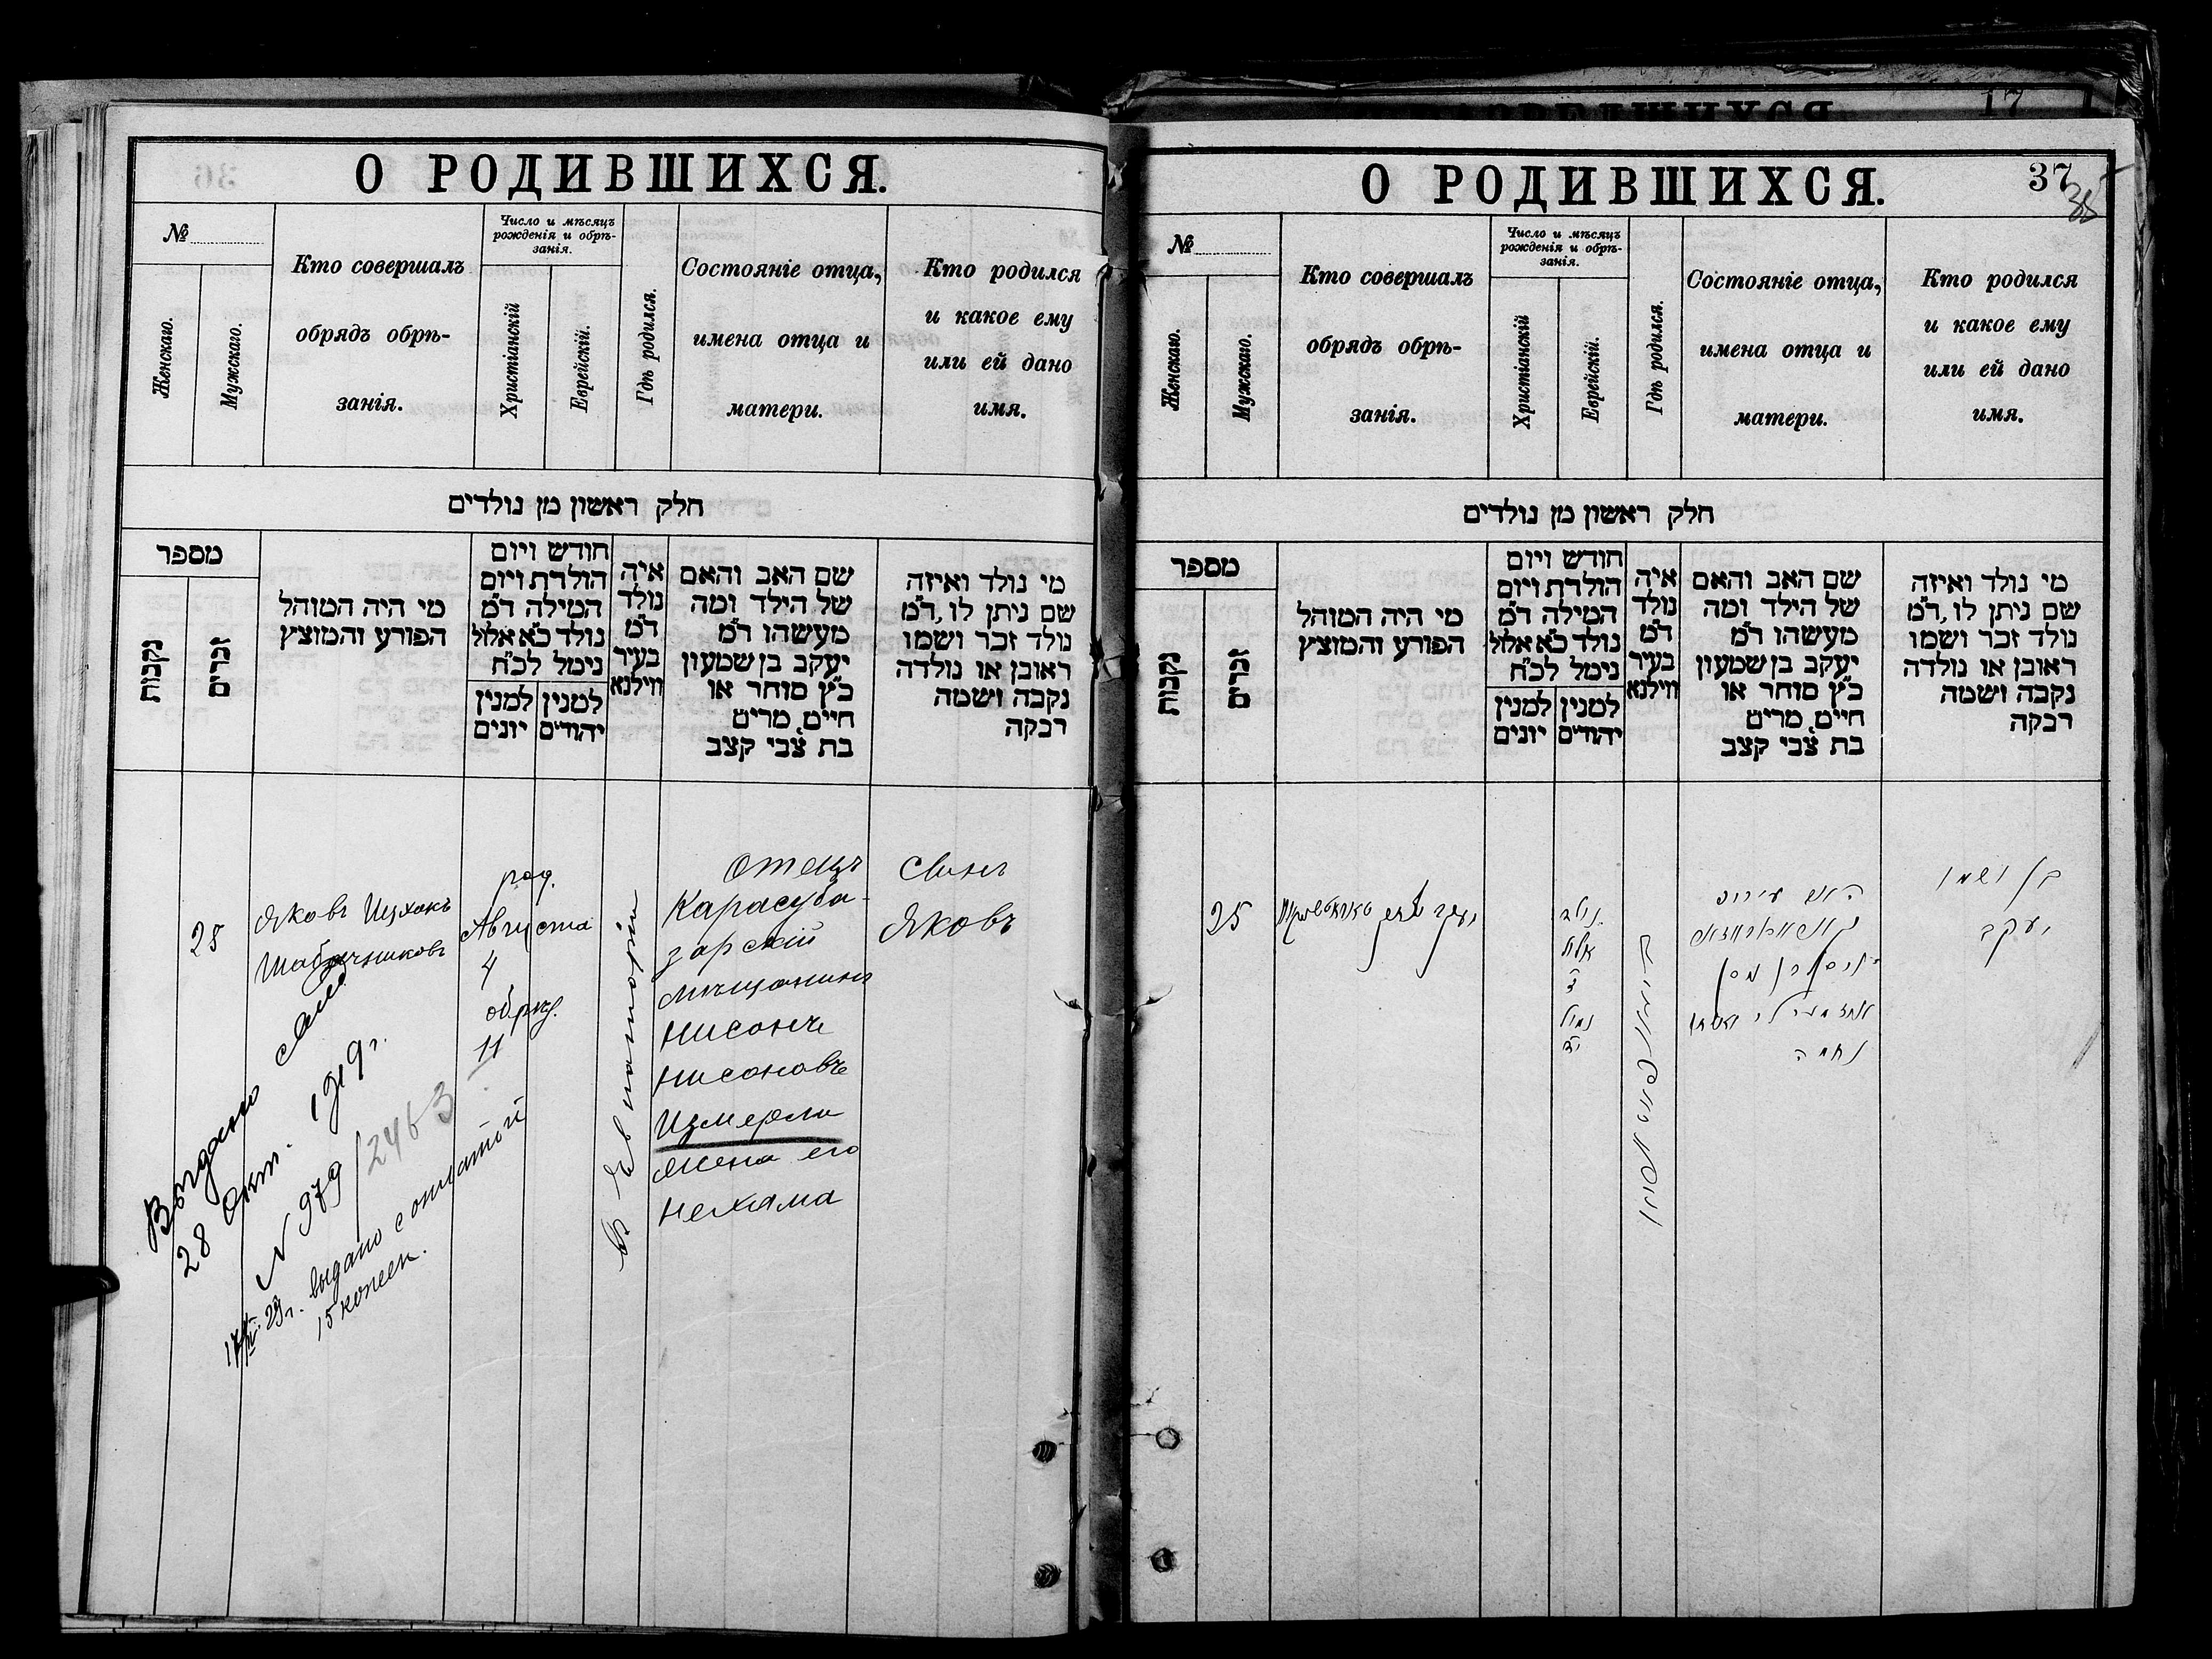 О РОДИВШИХСЯ.
№
Женскаго.
Мужскаго.
Кто совершалъ
обрядъ обрѣ-
занія.
Число и мѣсяцъ
рожденія и обрѣ-
занія.
Христіанскій
Еврейскій.
Гдѣ родился.
Состояніе отца,
имена отца и
матери.
Кто родился
и какое ему
или ей дано
имя.
חלק ראשון מן נולדים
מספר
נקבות
זכרים
מי היה המוהל
הפורע והמוצץ
חודש ויום
הולדת ויום
המילה ד"מ
נולד כ"א אלול
נימל לכ"ח
למנין יהודים
למנין יונים
איה
נולד
ד"מ
בעיר
ווילנא
שם האב והאם
של הילד ומה
מעשהו ד"מ
יעקב בן שמעון
כ"ץ סוחר או
חיים, מרים
בת צבי קצב
מי נולד ואיזה
שם ניתן לו, ד"מ
נולד זכר ושמו
ראובן או נולדה
נקבה ושמה
רבקה
25
Яковъ Ицхокъ
Шабачниковъ
род.
Августа
4
обрѣз.
11
въ Евпаторіи
Отецъ
Карасуба-
зарскій
мѣщанинъ
Нисонъ
Нисоновъ
Измерли
жена его
Нехама
Сынъ
Яковъ
Выдано
28 Окт. 1919 г.
N 979/2463
29 г. выдано с оплатой
15 копеек.
О РОДИВШИХСЯ.
37
№
Женскаго.
Мужскаго.
Кто совершалъ
обрядъ обрѣ-
занія.
Число и мѣсяцъ
рожденія и обрѣ-
занія.
Христіанскій
Еврейскій.
Гдѣ родился.
Состояніе отца,
имена отца и
матери.
Кто родился
и какое ему
или ей дано
имя.
חלק ראשון מן נולדים
מספר
נקבות
זכרים
מי היה המוהל
הפורע והמוצץ
חודש ויום
הולדת ויום
המילה ד"מ
נולד כ"א אלול
נימל לכ"ח
למנין יהודים
למנין יונים
איה
נולד
ד"מ
בעיר
ווילנא
שם האב והאם
של הילד ומה
מעשהו ד"מ
יעקב בן שמעון
כ"ץ סוחר או
חיים, מרים
בת צבי קצב
מי נולד ואיזה
שם ניתן לו, ד"מ
נולד זכר ושמו
ראובן או נולדה
נקבה ושמה
רבקה
25
יעקב יצחק
נולד
אלול
נמול
ניסן בן ניסן
ואשתו
נחמה
בן ושמו
יעקב